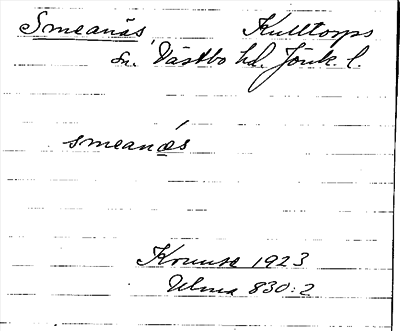 Smeanäs, Kulltorps
sn. Västbo hd. Jönk. l.
smeanä́s
1923
Ulma 830:2